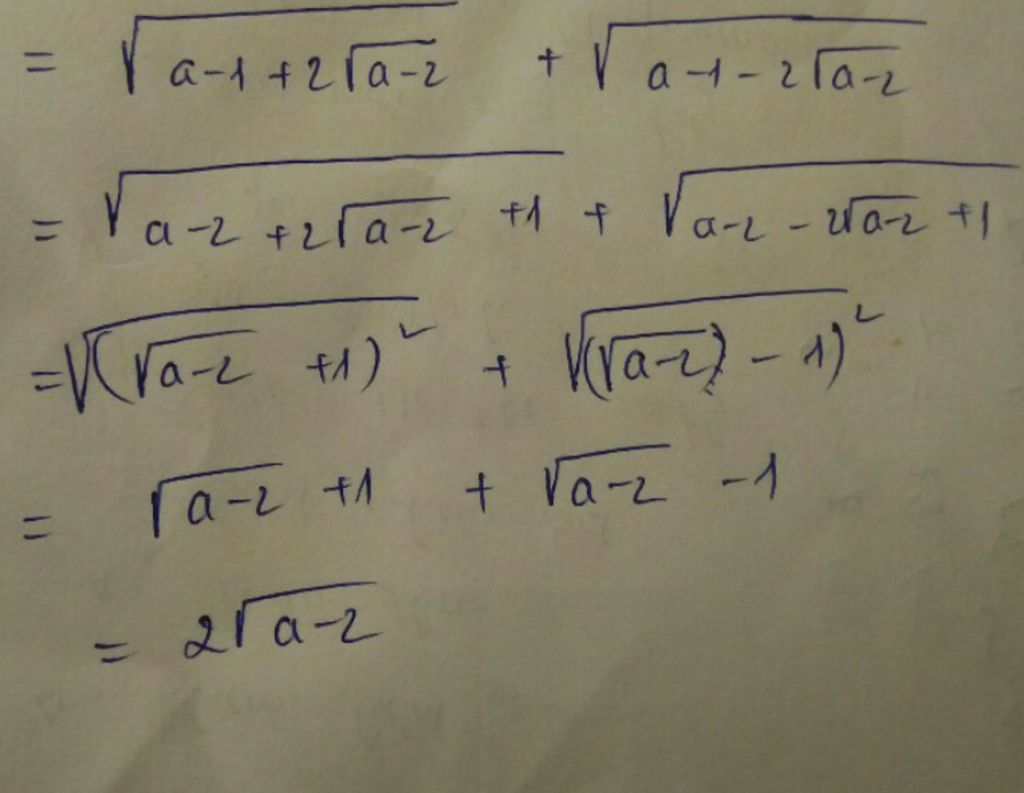 = √(a-1+2√(a-2)) + √(a-1-2√(a-2))
= √(a-2+2√(a-2)+1) + √(a-2-2√(a-2)+1)
= √((√(a-2)+1)²) + √((√(a-2))-1)²
= √(a-2)+1 + √(a-2)-1
= 2√(a-2)